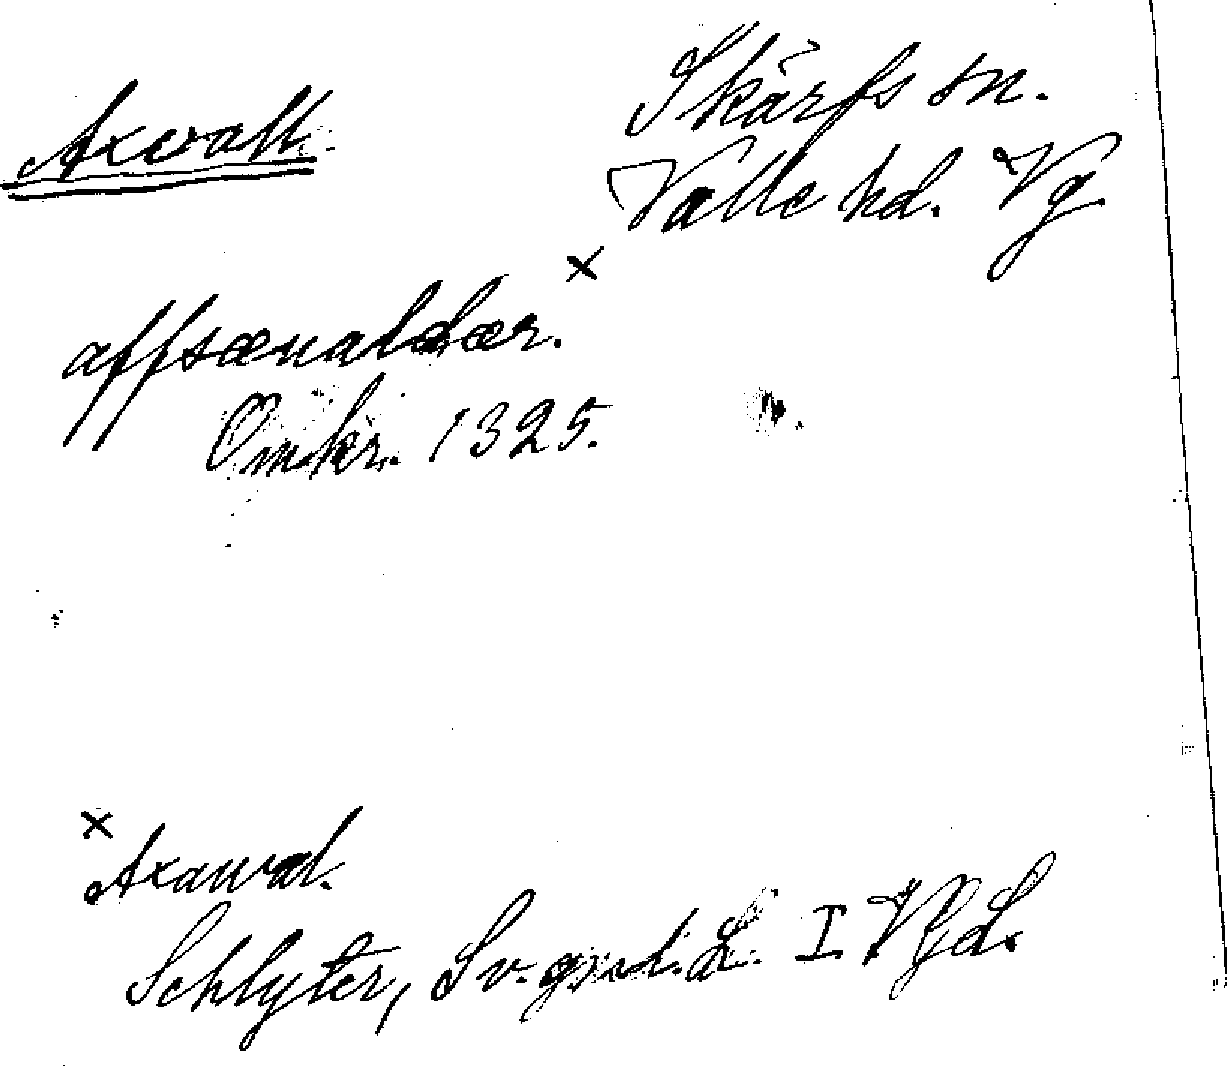 Axvall.
Skärfs sn.
Valle hd. Vg.
×
Omkr. 1325.
× Axawal.
Schlyter, Sv. gml. L. I VgL.